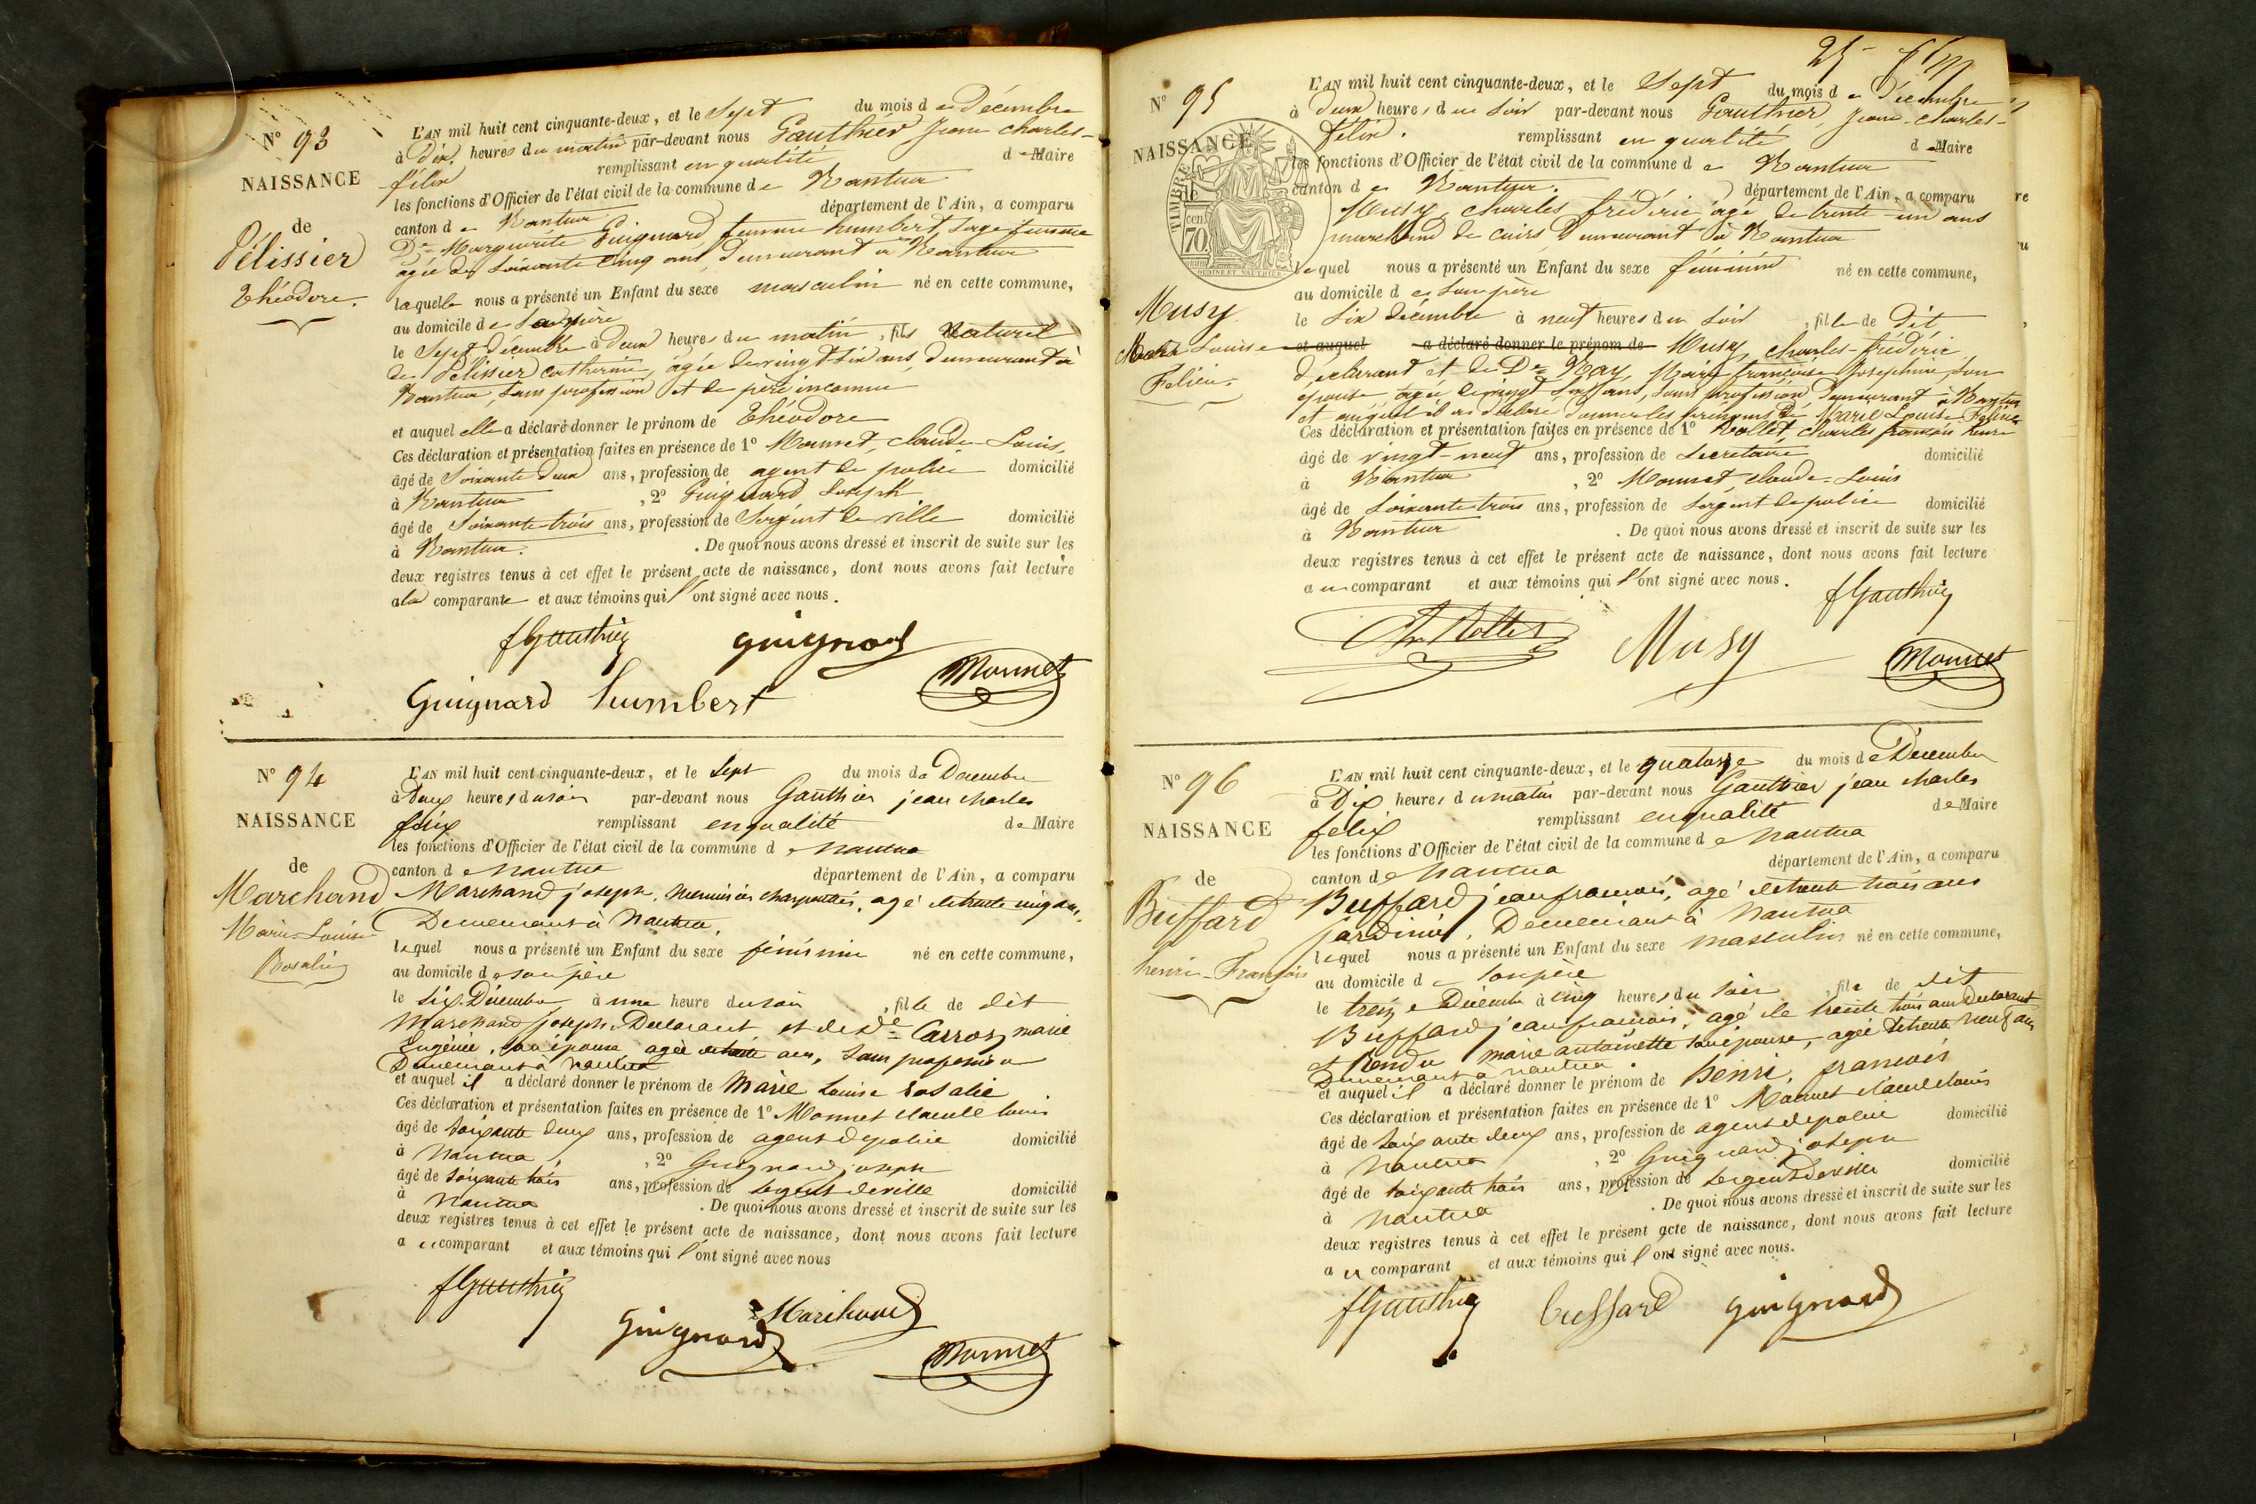 N° 93
NAISSANCE
de
Pélissier
Théodore.
L'AN mil huit cent cinquante-deux, et le Sept du mois de Décembre
à Dix heures du matin par-devant nous Gauthier Jean charles-
félix remplissant en qualité de Maire
les fonctions d'Officier de l'état civil de la commune de Nantua
canton de Nantua département de l'Ain, a comparu
De Marguerite Guignard femme humbert, Sage femme
agée de Soixante Cinq ans, demeurant à Nantua
laquelle nous a présenté un Enfant du sexe masculin né en cette commune,
au domicile de
le Sept décembre à Deux heures du matin, fils Naturel
de Pélissier catherine, agée de vingt six ans, demeurant à
Nantua, sans profession et de père inconnu
et auquel elle a déclaré donner le prénom de Théodore
Ces déclaration et présentation faites en présence de 1° Monnet, claude Louis,
âgé de Soixante deux ans, profession de agent de police domicilié
à Nantua, 2° Guignard Joseph
âgé de Soixante-trois ans, profession de Sergent de ville domicilié
à Nantua. De quoi nous avons dressé et inscrit de suite sur les
deux registres tenus à cet effet le présent acte de naissance, dont nous avons fait lecture
a la comparante et aux témoins qui l'ont signé avec nous.
fGauthier guignard
Guignard humbert Monnet
N° 94
NAISSANCE
de
Marchand
Marie-Louise
Rosalie
L'AN mil huit cent cinquante-deux, et le Sept du mois de Décembre
à deux heures du soir par-devant nous Gauthier jean charles
félix remplissant en qualité de Maire
les fonctions d'Officier de l'état civil de la commune de nantua
canton de nantua département de l'Ain, a comparu
Marchand joseph, menuisier charpentier, agé de trente cinq ans,
Demeurant à Nantua,
lequel nous a présenté un Enfant du sexe féminin né en cette commune,
au domicile de son père
le Six Décembre à une heure du soir, fille de dit
Marchand joseph Déclarant et de de Carroz marie
Eugénie, son épouse agée de trente ans, sans profession
Demeurant à nantua
et auquel il a déclaré donner le prénom de Marie Louise Rosalie
Ces déclaration et présentation faites en présence de 1° Monnet claude louis
âgé de soixante deux ans, profession de agent de police domicilié
à Nantua, 2° Guignard joseph
âgé de soixante trois ans, profession de sergent de ville domicilié
à nantua. De quoi nous avons dressé et inscrit de suite sur les
deux registres tenus à cet effet le présent acte de naissance, dont nous avons fait lecture
au comparant et aux témoins qui l'ont signé avec nous
fGauthier
Marchand
guignard
Monnet
25
N° 95
NAISSANCE
TIMBRE
cen 70
Musy
Marie Louise
Felicie.
L'AN mil huit cent cinquante-deux, et le Sept du mois de Décembre
à Deux heures du Soir par-devant nous Gauthier, Jean-charles-
félix. remplissant en qualité de Maire
les fonctions d'Officier de l'état civil de la commune de Nantua
canton de Nantua. département de l'Ain, a comparu
Musy, charles frédéric, agé de trente-un ans
marchand de cuirs, Demeurant à Nantua
lequel nous a présenté un Enfant du sexe féminin né en cette commune,
au domicile de son père
le Six décembre à neuf heures du Soir, fille de dit
et auquel a déclaré donner le prénom de Musy, charles-frédéric
déclarant et de De Nay, Marie françoise Joséphine, Son
épouse, agée de vingt Sept ans, sans profession, Demeurant à Nantua
et auquel il a déclaré donner les prénoms de Marie Louise Felicie
Ces déclaration et présentation faites en présence de 1° Rollet, charles françois henri
âgé de vingt-neuf ans, profession de Secretaire domicilié
à Nantua, 2° Monnet, claude-Louis
âgé de Soixante trois ans, profession de Sergent de police domicilié
à Nantua. De quoi nous avons dressé et inscrit de suite sur les
deux registres tenus à cet effet le présent acte de naissance, dont nous avons fait lecture
au comparant et aux témoins qui l'ont signé avec nous.
fGauthier
Rollet Musy Monnet
N° 96
NAISSANCE
de
Buffard
henri-François
L'AN mil huit cent cinquante-deux, et le quatorze du mois de Décembre
à Dix heures du matin par-devant nous Gauthier jean charles
felix remplissant en qualité de Maire
les fonctions d'Officier de l'état civil de la commune de nantua
canton de Nantua département de l'Ain, a comparu
Buffard jean françois, agé de trente trois ans
jardinier, Demeurant à Nantua
lequel nous a présenté un Enfant du sexe masculin né en cette commune,
au domicile de son père
le treize Décembre à Cinq heures du soir, fils de dit
Buffard jean françois, agé de trente trois ans Déclarant
et Rendu marie antoinette son épouse, agée de trente neuf ans
Demeurant à nantua.
et auquel il a déclaré donner le prénom de henri, françois
Ces déclaration et présentation faites en présence de 1° Monnet claude louis
âgé de soixante deux ans, profession de agent de police domicilié
à Nantua, 2° Guignard joseph
âgé de soixante trois ans, profession de sergent de ville domicilié
à Nantua. De quoi nous avons dressé et inscrit de suite sur les
deux registres tenus à cet effet le présent acte de naissance, dont nous avons fait lecture
au comparant et aux témoins qui l'ont signé avec nous.
fGauthier buffard guignard